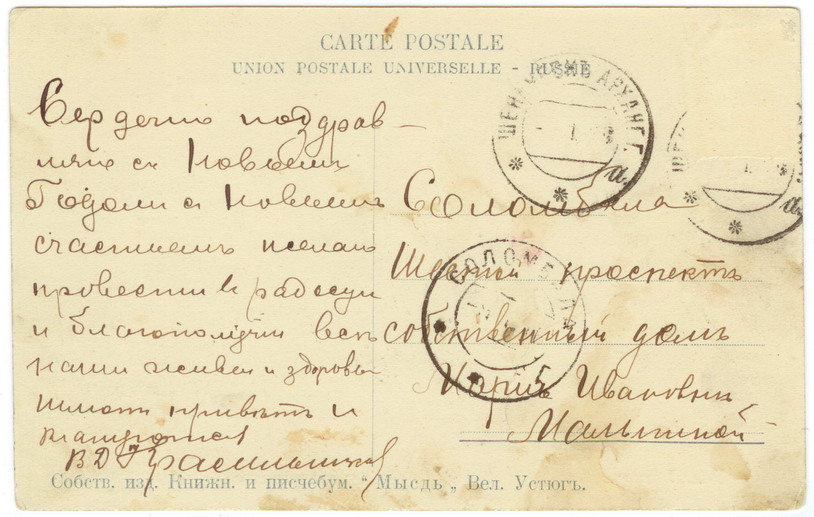 CARTE POSTALE
UNION POSTALE UNIVERSELLE - RUSSIE
ШЕНКУРСКЪ АРХАНГ. Г.
а.
Сердечно поздрав–
ляю съ Новымъ
Годомъ съ Новымъ
счастьемъ желаю
провести въ радости
и благополучіи весь
наши живы и здоровы
шлютъ привѣтъ и
В Д
Соломбала
Шестой проспектъ
собственный домъ
Маріѣ Ивановнѣ
Малыгиной
СОЛОМБАЛА
Собств. изд. Книжн. и писчебум. "Мысдь„ Вел. Устюгъ.